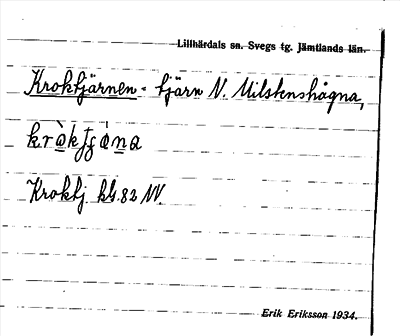 Lillhärdals sn. Svegs tg. Jämtlands län.
Kroktjärnen - tjärn N. Milstenshågna,
Kroktj. kbl. 82 NV.
Erik Eriksson 1934.